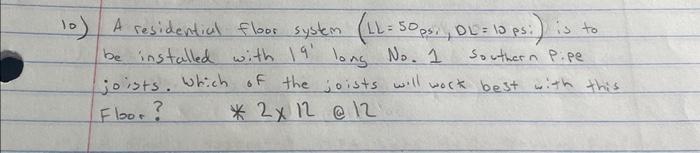 10) A residential floor system (LL = 50psi, DL = 10 psi) is to
be installed with 19' long No. 1 Southern Pipe
joists. Which of the joists will work best with this
Floor? * 2 x 12 @ 12